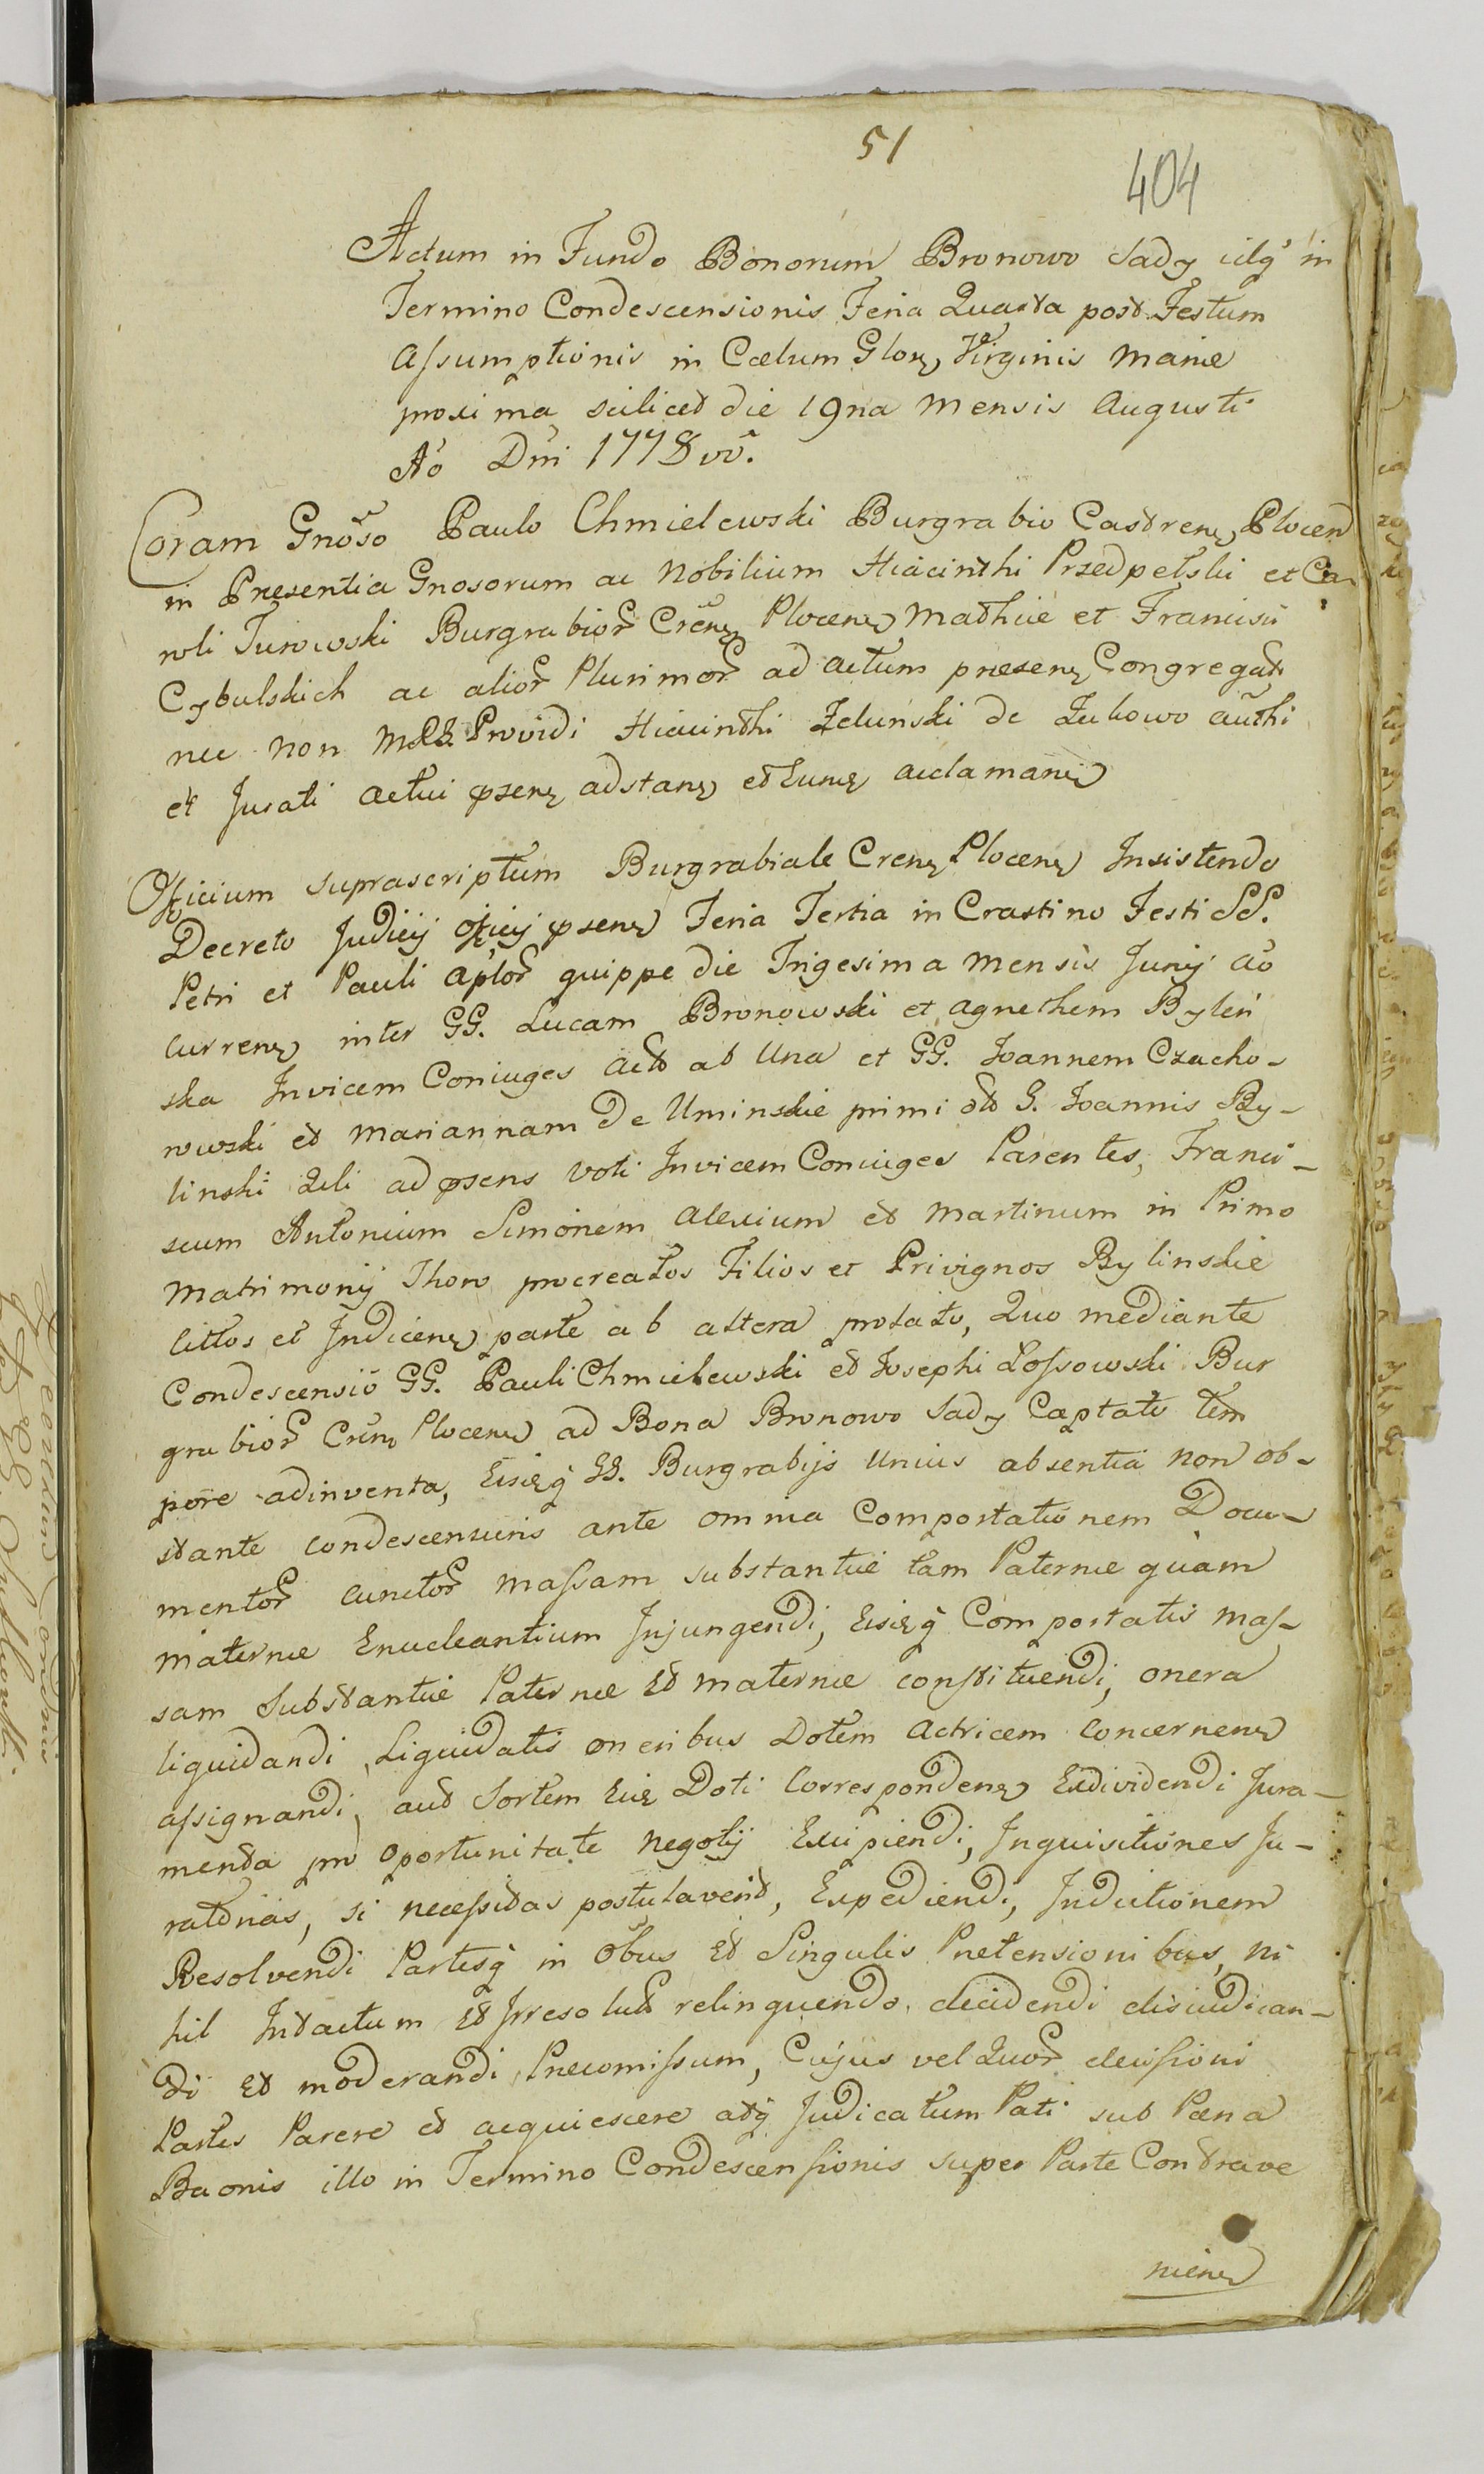 51
404
Actum in Fundo Bonorum Bronowo Sady idq̃ in
Termino Condescensionis Feria Quarta post Festum
Assumptionis in Cœlum Glorę Virginis Mariæ
proxima scilicet die 19na Mensis Augusti
Aõ Dñi 1778vo.
Coram Gnõso Paulo Chmielewski Burgrabio Castrenę Plocen
in Præsentia Gnosorum ac Nobilium Hiacinthi Przedpełski et Ca-
roli Turowski Burgrabior̃ Crẽnę Plocenę Mathiæ et Francisci
Cybulskich ac alior̃ Plurimor̃ ad actum præsenę Congregat
nec non Mrs Providi Hiacinthi Zeluński de Łukowo aũthi
et Jurati actui pzenę adstanę et hunę acclamanę
Officium suprascriptum Burgrabiale Crenę Plocenę Insistendo
Decreto Judicij officij psenę Feria Tertia in Crastino Festi SS.
Petri et Pauli aplor̃ quippe die Trigesima Mensis Junij aõ
currenę inter GG. Lucam Bronowski et Agnethem Byleń
ska Invicem Coniuges act ab Una et GG. Joannem Czacho-
rowski et Mariannam de Uminskie primi ół G. Joannis By-
linski 2di ad psens voti Invicem Coniuges Parentes, Franci-
scum Antonium Simonem Alexium et Martinum in Primo
Matrimonij Thoro procreatos Filios et Privignos Bylinskie
cittos et Indicenę parte ab altera prolato, Quo mediante
Condescensio GG. Pauli Chmielewski et Josephi Lossowski Bur
grabior̃ Crẽnę Plocenę ad Bona Bronowo Sady Cæptato tem̃
pore adinventa, Eisęq̃ GG. Burgrabijs Unius absentia non ob-
stante condescensuris ante omnia Comportationem Docu-
mentor̃ cunctor̃ Massam substantiæ tam Paternæ quam
Maternæ Enucleantium Injungendi, Eisęq̃ Comportatis Mas-
sam Substantiæ Paternæ et Maternæ constituendi, onera
liquidandi, Liquidatis oneribus Dotem Actricem concernenę
assignandi, aut Sortem Eię Doti Correspondenę Exdividendi Jura-
menta pro Oportunitate Negotij Excipiendi, Inquisitiones Ju-
ratorias, si necessitas postulaverit, Expediendi, Inductionem
Resolvendi Partesq̃ in Oĩbus et Singulis Prætensionibus, ni
hil Intactum et Irresolut relinquendo, decidendi disiudican-
di et moderandi Præcomissum, Cujus vel Quor̃ decisioni
Partes Parere et acquiescere atq̃ Judicatum Pati sub Pæna
Baonis illo in Termino Condescensionis super Parte Contrave
nienę